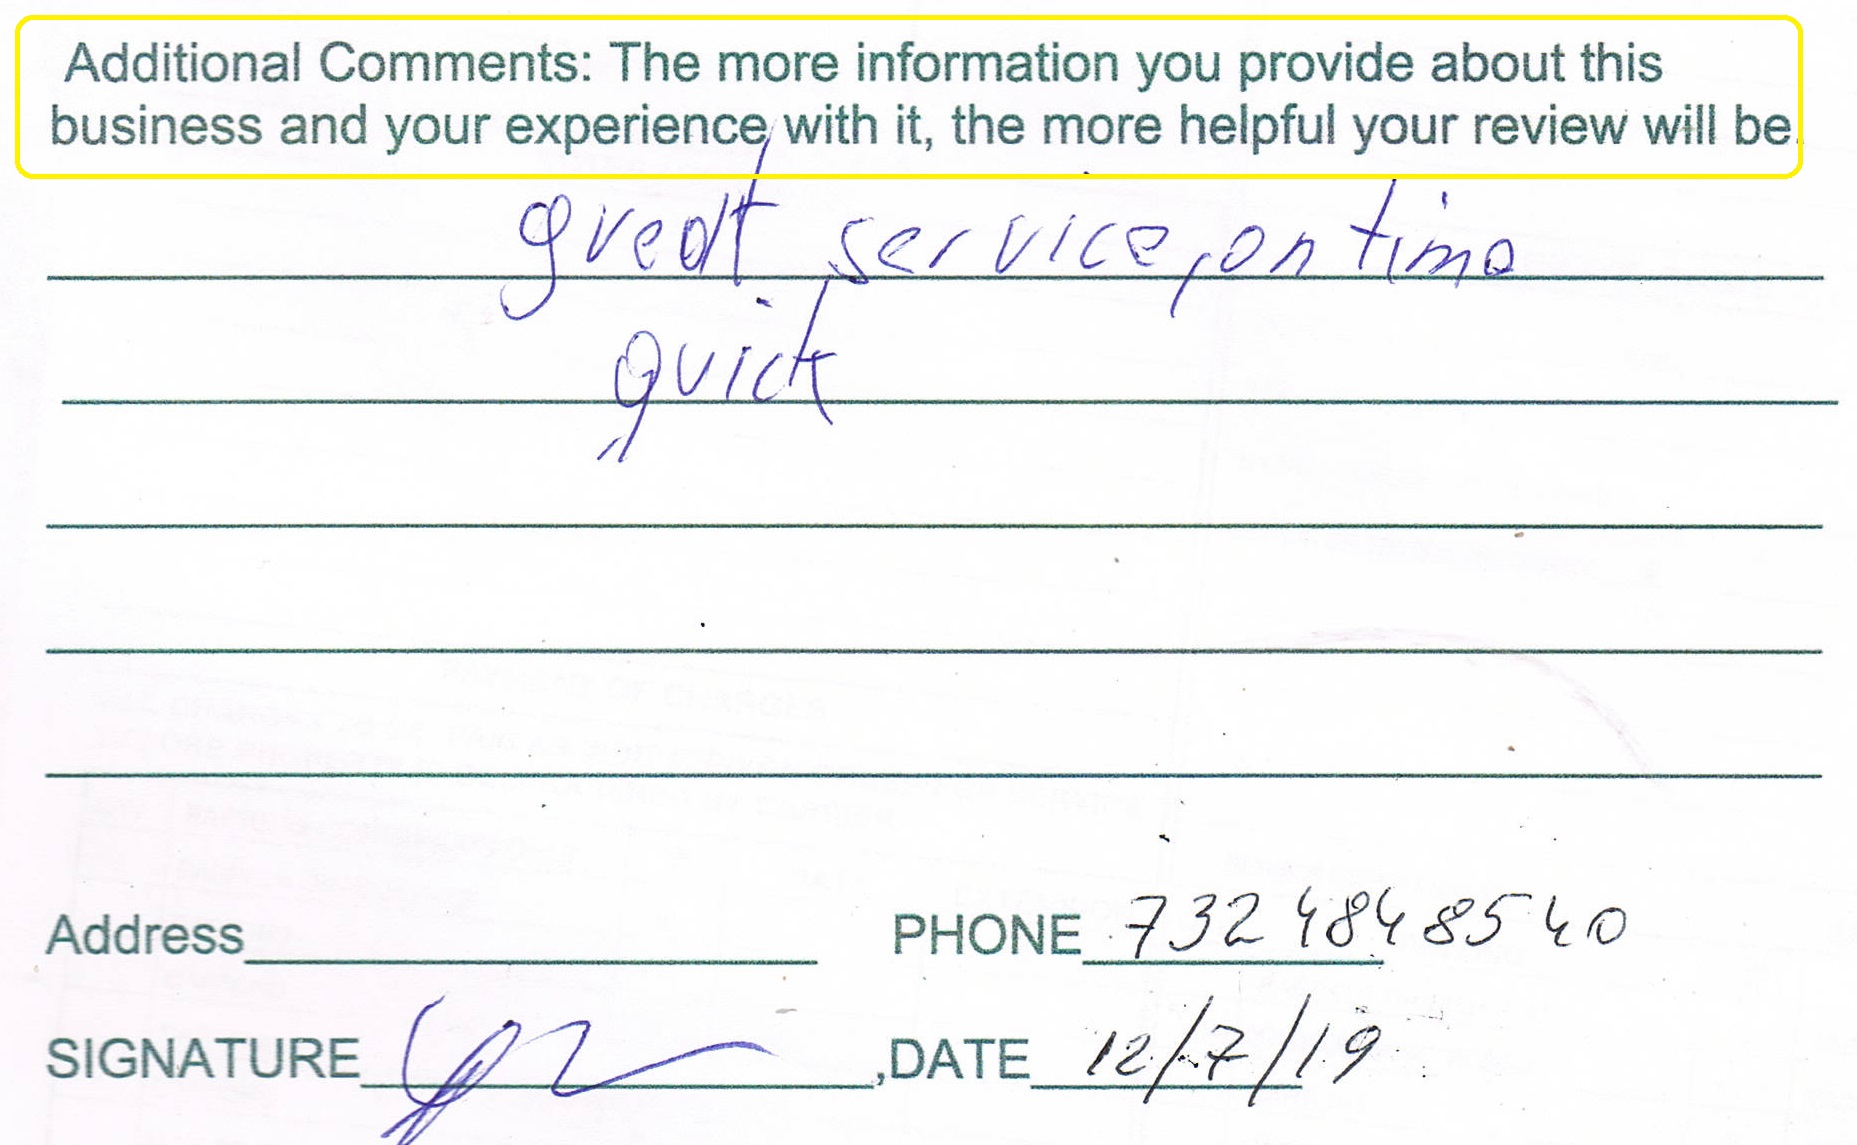 Additional Comments: The more information you provide about this
business and your experience with it, the more helpful your review will be.
great service, on time
quick
Address
PHONE 732 484 8540
SIGNATURE
,DATE 12/7/19